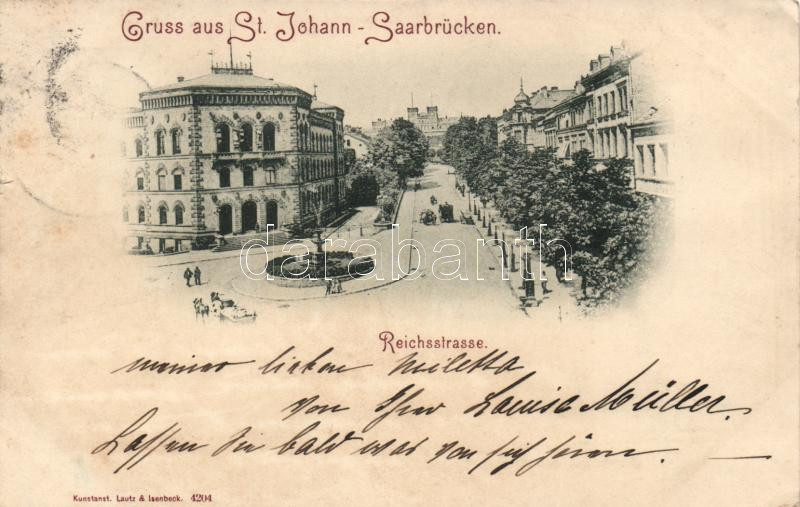 Gruss aus St. Johann - Saarbrücken.
darabanth.com
Reichsstrasse.
meiner lieben Miletta
von Ihrer Louise Müller.
Lassen Sie bald was von sich hören. —
Kunstanst. Lautz & Isenbeck. 4204